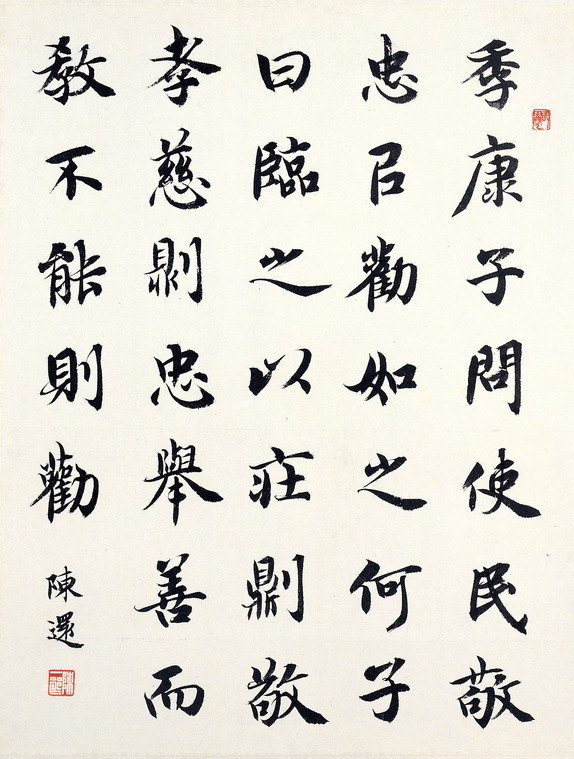 季康子問使民敬
忠㠯勸如之何子
曰臨之以莊𠟭敬
孝慈𠟭忠舉善而
教不能則勸
陳還